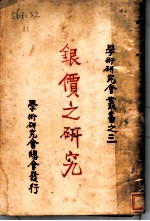 561.32
學術研究會叢書之三
銀價之研究
學術研究會總會發行